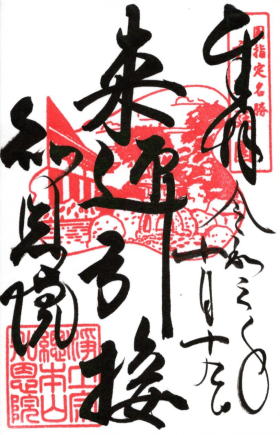 奉拝
令和三年
十月十九日
国指定名勝
来迎引接
知恩院
浄土宗
総本山
知恩院